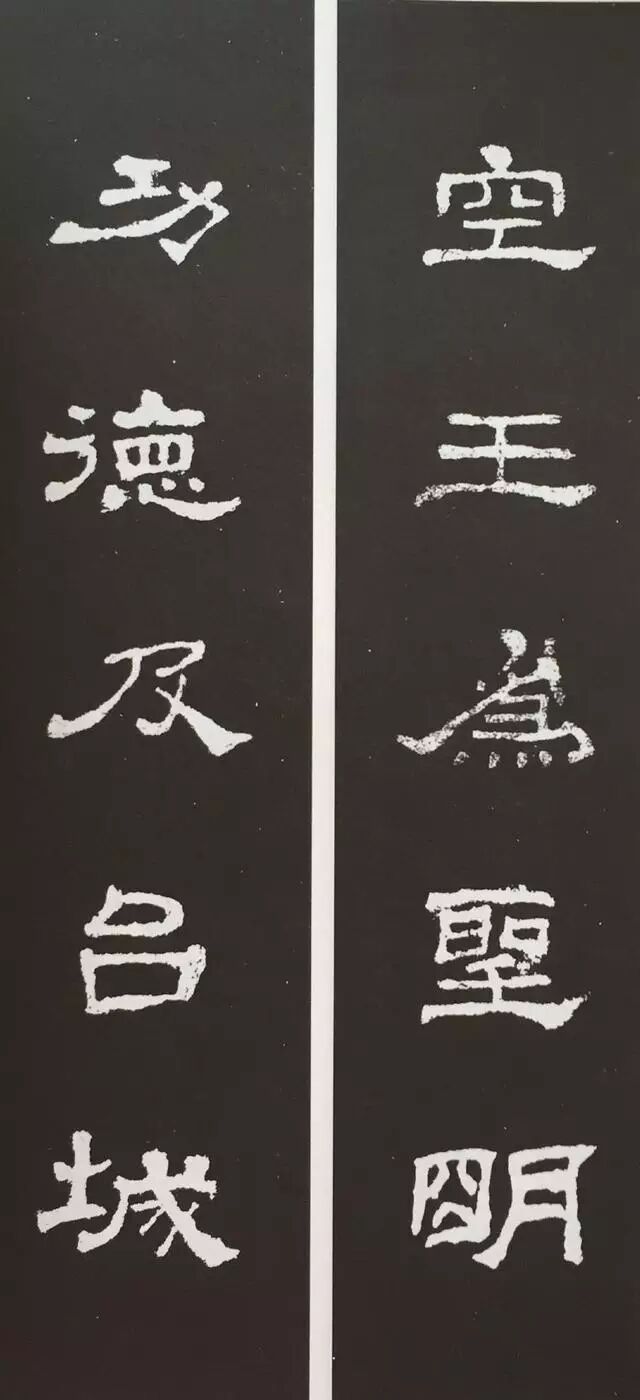 空王為聖明
功德及吕城